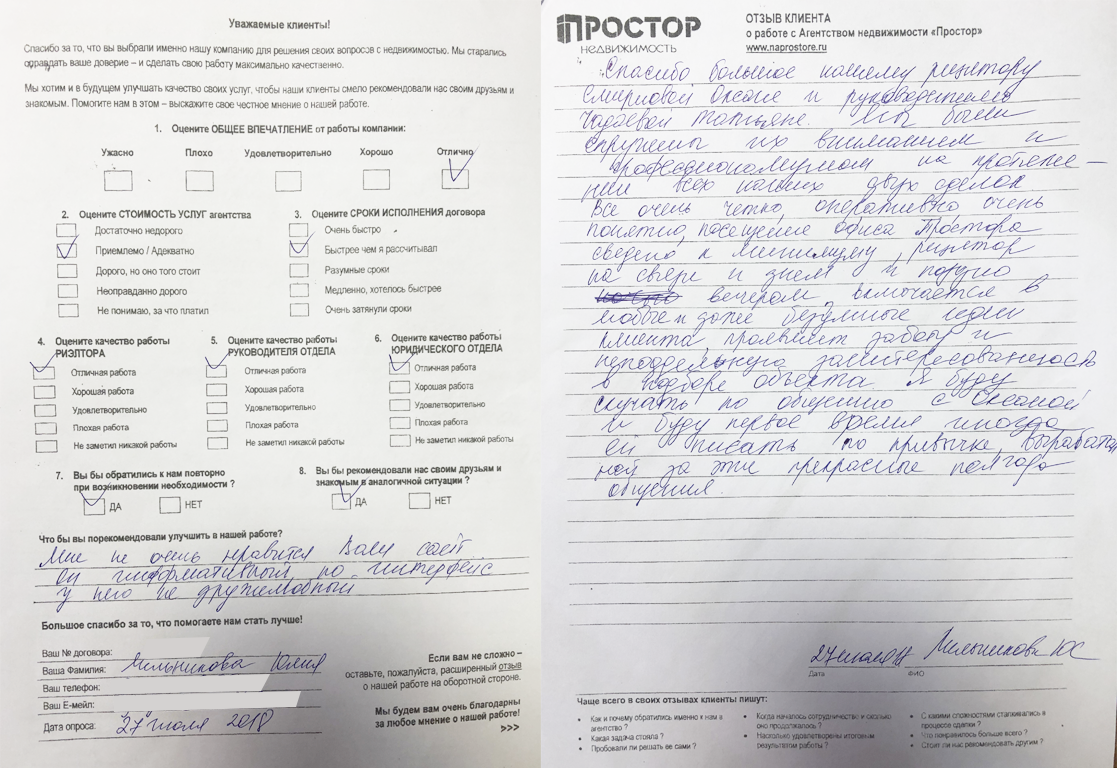 Уважаемые клиенты!
Спасибо за то, что вы выбрали именно нашу компанию для решения своих вопросов с недвижимостью. Мы старались
оправдать ваше доверие – и сделать свою работу максимально качественно.
Мы хотим и в будущем улучшать качество своих услуг, чтобы наши клиенты смело рекомендовали нас своим друзьям и
знакомым. Помогите нам в этом – выскажите свое честное мнение о нашей работе.
1. Оцените ОБЩЕЕ ВПЕЧАТЛЕНИЕ от работы компании:
Ужасно Плохо Удовлетворительно Хорошо Отлично
2. Оцените СТОИМОСТЬ УСЛУГ агентства
Достаточно недорого
Приемлемо / Адекватно
Дорого, но оно того стоит
Неоправданно дорого
Не понимаю, за что платил
3. Оцените СРОКИ ИСПОЛНЕНИЯ договора
Очень быстро
Быстрее чем я рассчитывал
Разумные сроки
Медленно, хотелось быстрее
Очень затянули сроки
4. Оцените качество работы
РИЭЛТОРА
Отличная работа
Хорошая работа
Удовлетворительно
Плохая работа
Не заметил никакой работы
5. Оцените качество работы
РУКОВОДИТЕЛЯ ОТДЕЛА
Отличная работа
Хорошая работа
Удовлетворительно
Плохая работа
Не заметил никакой работы
6. Оцените качество работы
ЮРИДИЧЕСКОГО ОТДЕЛА
Отличная работа
Хорошая работа
Удовлетворительно
Плохая работа
Не заметил никакой работы
7. Вы бы обратились к нам повторно
при возникновении необходимости ?
ДА НЕТ
8. Вы бы рекомендовали нас своим друзьям и
знакомым в аналогичной ситуации ?
ДА НЕТ
Что бы вы порекомендовали улучшить в нашей работе?
Мне не очень нравится Ваш сайт
он информативный, но интерфейс
у него не дружелюбный
Большое спасибо за то, что помогаете нам стать лучше!
Ваш № договора:
Ваша Фамилия: Мельникова Юлия
Ваш телефон:
Ваш Е-мейл:
Дата опроса: "27" июля 2018
Если вам не сложно –
оставьте, пожалуйста, расширенный отзыв
о нашей работе на оборотной стороне.
Мы будем вам очень благодарны
за любое мнение о нашей работе!
>>>
ПРОСТОР
НЕДВИЖИМОСТЬ
ОТЗЫВ КЛИЕНТА
о работе с Агентством недвижимости «Простор»
www.naprostore.ru
Спасибо большое нашему риэлтору
Смирновой Оксане и руководителю
Чадаевой Татьяне. Мы были
окружены их вниманием и
профессионализмом на протяже-
нии всех наших двух сделок
Все очень четко, оперативно очень
понятно, посещение офиса Простора
сведено к минимуму, риэлтор
на связи и днем и поздно
вечером, включается в
любые и даже безумные идеи
клиента проявляет заботу и
неподдельную заинтересованность
в подборе объекта. Я буду
скучать по общению с Оксаной
и буду первое время иногда
ей писать по привычке, выработан
ной за эти прекрасные полгода
общения.
27 июля 18 Мельникова ЮС
Дата ФИО
Чаще всего в своих отзывах клиенты пишут:
• Как и почему обратились именно к нам в
агентство ?
• Какая задача стояла ?
• Пробовали ли решать ее сами ?
• Когда началось сотрудничество и сколько
оно продолжалось ?
• Насколько удовлетворены итоговым
результатом работы ?
• С какими сложностями сталкивались в
процессе сделки ?
• Что понравилось больше всего ?
• Стоит ли нас рекомендовать другим ?